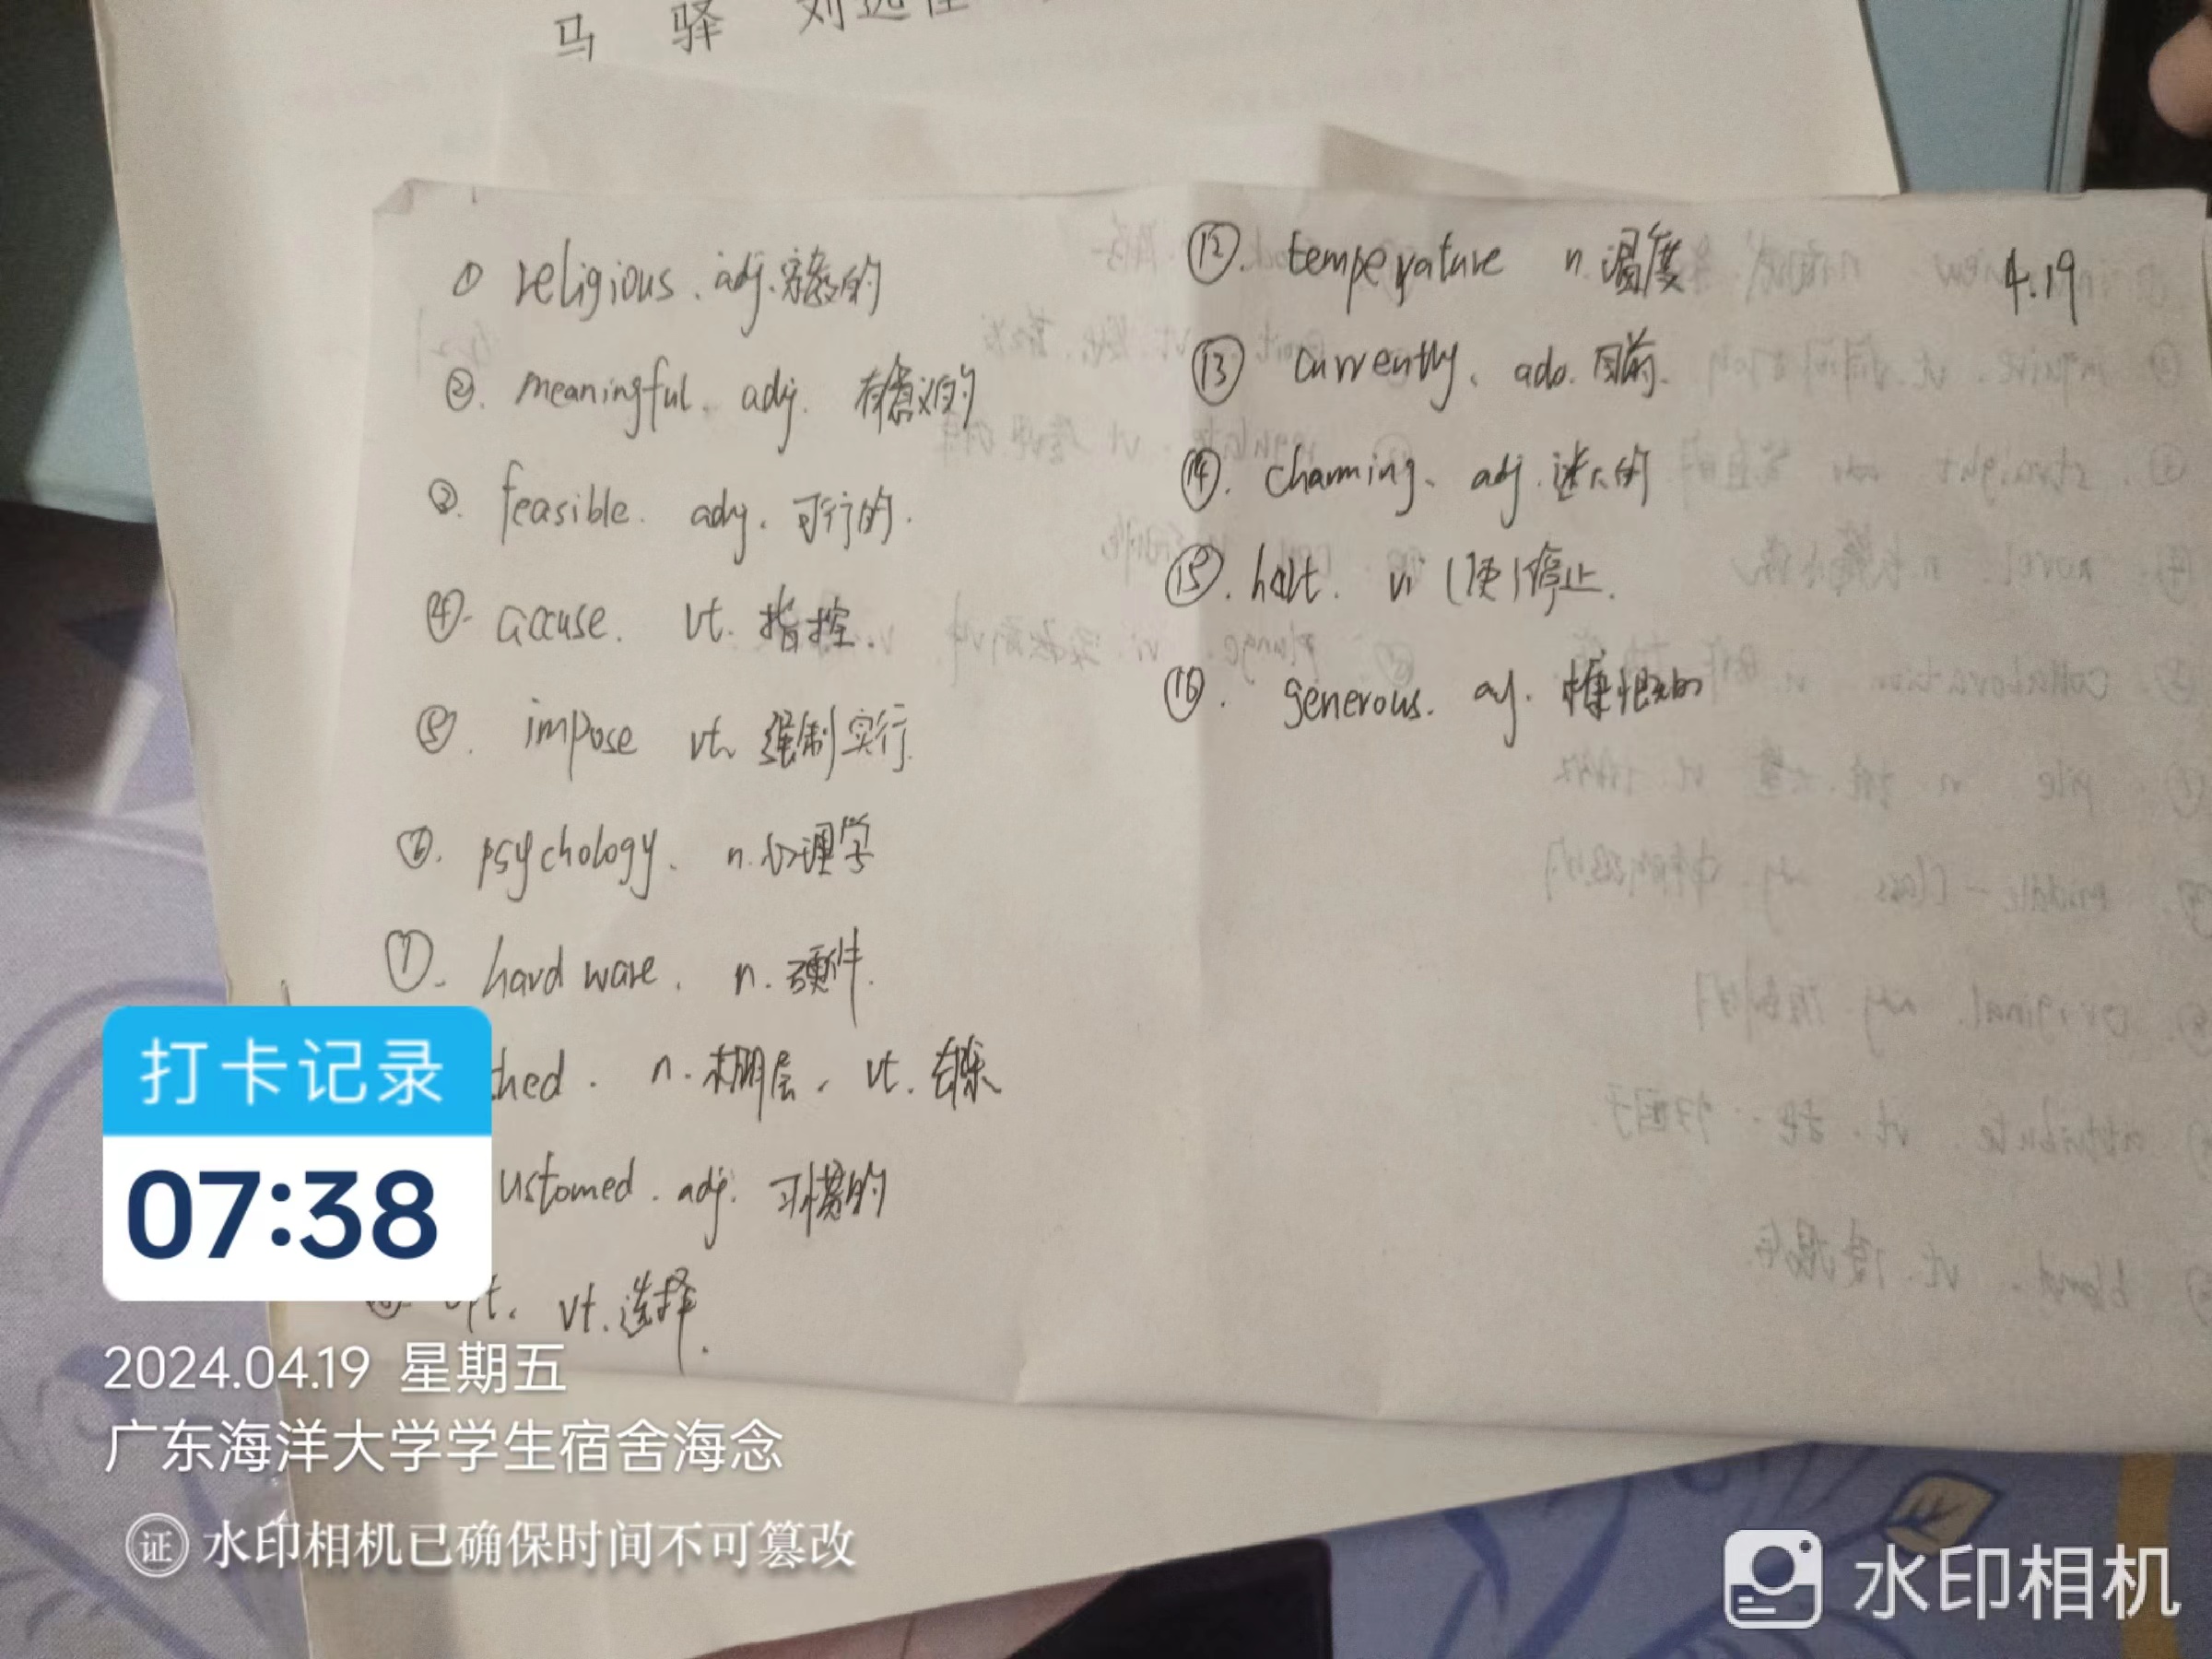 马 驿 刘远佳
① religious. adj. 宗教的
②. meaningful. adj. 有意义的
③. feasible. adj. 可行的.
④. accuse. vt. 指控.
⑤. impose vt. 强制实行.
⑥. psychology. n. 心理学
⑦. hardware. n. 硬件.
hed. n. 棚层, vt. 去除
ustomed. adj. 习惯的
opt. vt. 选择.
⑫. temperature n. 温度
4.19
⑬ currently. adv. 目前.
⑭. charming. adj. 迷人的
⑮. halt. vi (使)停止.
⑯. generous. adj. 慷慨的
打卡记录
07:38
2024.04.19 星期五
广东海洋大学学生宿舍海念
证 水印相机已确保时间不可篡改
水印相机